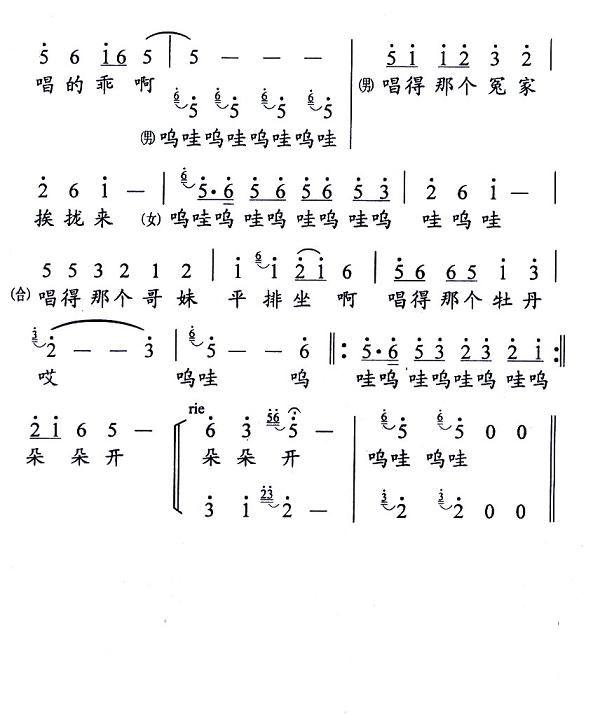 5 6 i6 5 | 5 — — — | 5i i2 3 2 |
唱的乖 啊 ㊚唱得那个冤家
6 5 6 5 6 5 6 5
㊚呜哇呜哇呜哇呜哇
2 6 i — | 6 5·6 56 56 53 | 2 6 i — |
挨拢来 ㊛呜哇呜 哇呜哇呜 哇呜 哇呜哇
5 5 3 2 1 2 | i 6 i 2i 6 | 56 65 i 3 |
㊌唱得那个哥妹 平排坐 啊 唱得那个牡丹
3 2 — — 3 | 6 5 — — 6 ‖: 5·6 53 23 2i :‖
哎 呜哇 呜 哇呜 哇呜哇呜 哇呜
rie
2i 6 5 — 6 3 56 5 — | 6 5 6 5 0 0 ‖
朵 朵开 朵朵开 呜哇 呜哇
3 i 23 2 — | 3 2 3 2 0 0 ‖